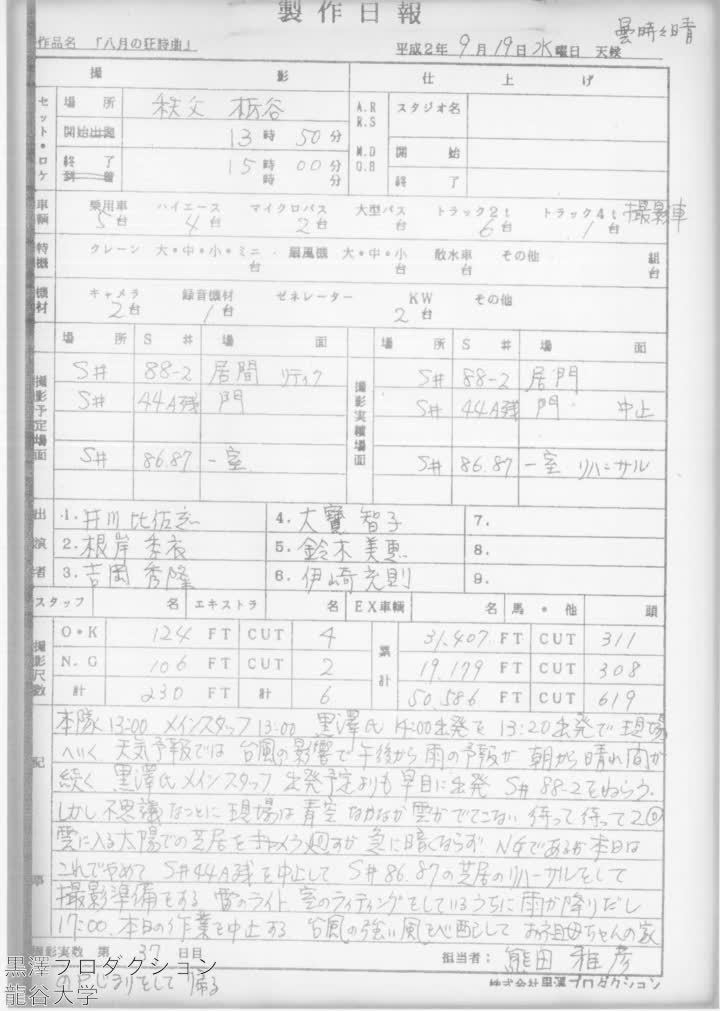 製作日報
作品名 「八月の狂詩曲」 平成2年 9月 19日 水曜日 天候 曇時々晴
撮 影 仕上げ
セット・ロケ 場所 秩父 栃谷 A.R R.S スタジオ名
開始出発 13時 50分
M.D D.B 開始
終了到着 15時 00分
時 分 終了
車輌 乗用車 5台 ハイエース 4台 マイクロバス 2台 大型バス 台 トラック2t 6台 トラック4t 1台 撮影車
特機 クレーン 大・中・小・ミニ 台 扇風機 大・中・小 台 散水車 台 その他 組 台
機材 キャメラ 2台 録音機材 1台 ゼネレーター KW 2台 その他
撮影予定場面 場所 S# 場面 撮影実績場面 場所 S# 場面
S# 88-2 居間 リテイク S# 88-2 居門
S# 44A残 門 S# 44A残 門 中止
S# 86.87 一室 S# 86.87 一室 リハーサル
出演者 1. 井川比佐志 4. 大寶智子 7.
2. 根岸季衣 5. 鈴木美恵 8.
3. 吉岡秀隆 6. 伊崎充則 9.
スタッフ 名 エキストラ 名 EX車輌 名 馬・他 頭
撮影尺数 O・K 124 FT CUT 4 累計 31,407 FT CUT 311
N.G 106 FT CUT 2 19,179 FT CUT 308
計 230 FT 計 6 50,586 FT CUT 619
記事
本隊 13:00 メインスタッフ 13:00 黒澤氏 14:00出発を 13:20出発で現場
へいく 天気予報では 台風の影響で午後から雨の予報が 朝から晴れ間が
続く 黒澤氏 メインスタッフ 出発予定よりも早目に出発 S#88-2をねらう.
しかし不思議なことに現場は青空 なかなか雲がでてこない 待って待って2回
雲に入る太陽での芝居をキャメラ廻すが 急に暗くならず NGであるが本日は
これでやめて S#44A残を中止して S#86.87の芝居のリハーサルをして
撮影準備をする 雷のライト 室のライティングをしているうちに雨が降りだし
17:00 本日の作業を中止する 台風の強い風を心配して お祖母ちゃんの家
撮影実数 第 37 日目 担当者: 熊田雅彦
して 帰る
株式会社黒澤プロダクション
黒澤プロダクション
龍谷大学